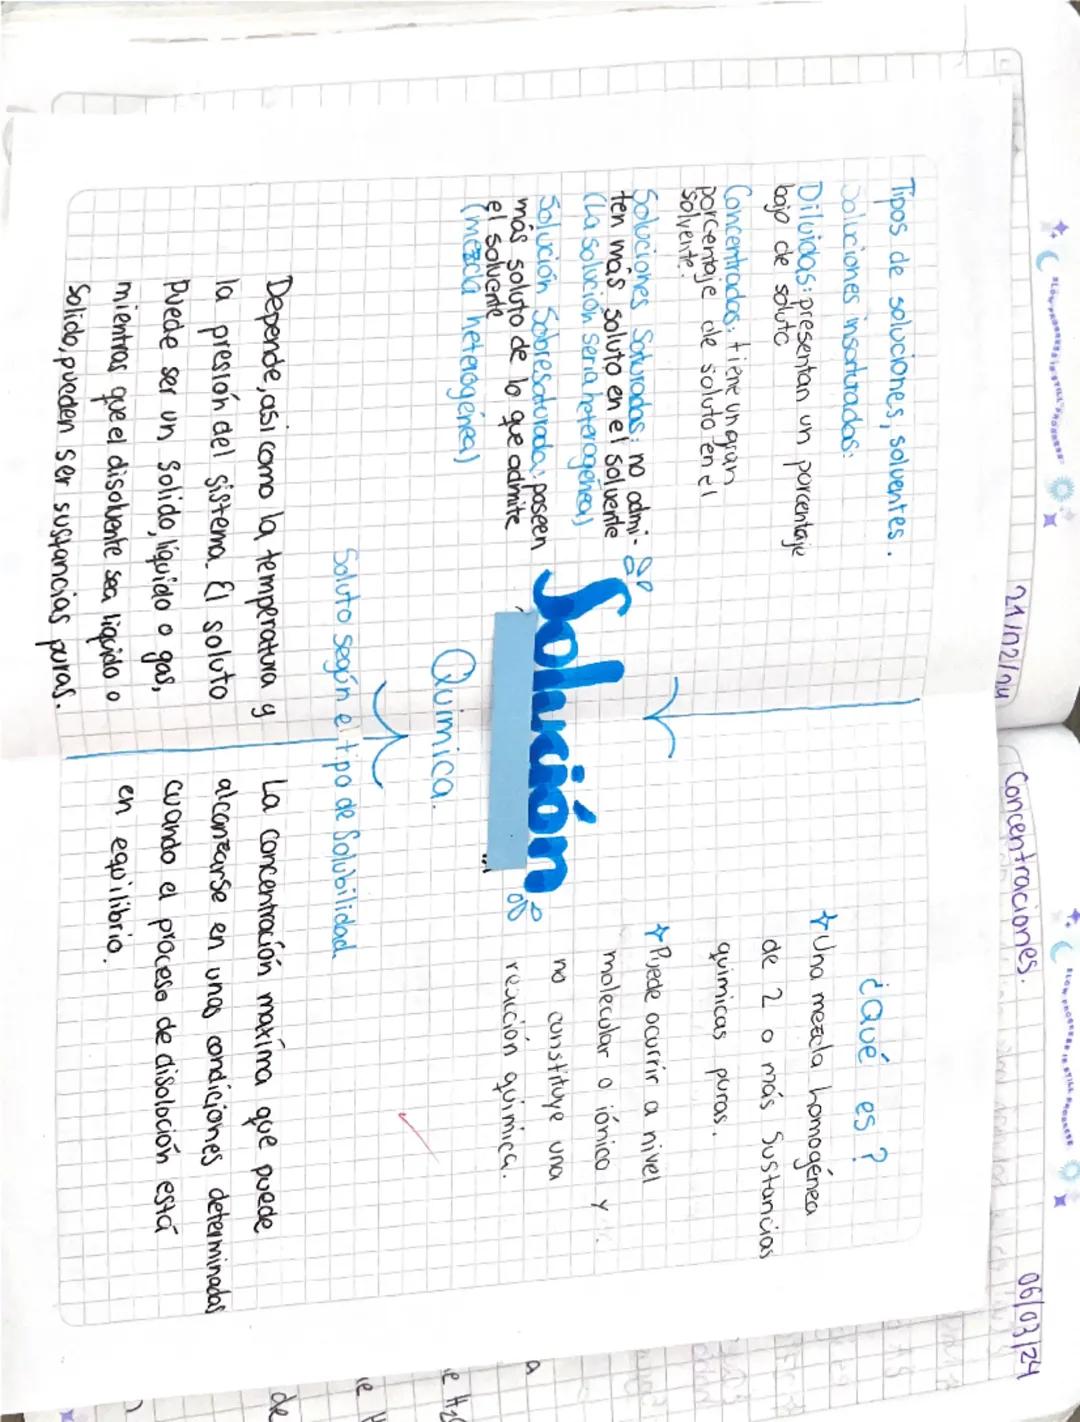 SLOW PROGRESS IS STILL PROGRESS
21/02/24
SLOW PROGRESS IS STILL PROGRESS
Concentraciones.
06/03/24
Tipos de soluciones, solventes.
Soluciones insaturadas:
Diluidas: presentan un porcentaje
bajo de soluto
Concentradas: tiene un gran
porcentaje de soluto en el
solvente.
Soluciones Saturadas: no admi-
ten más soluto en el solvente
(La solución sería heterogénea)
Solución Sobresaturada: poseen
más soluto de lo que admite
el solvente
(mezcla heterogénea)
¿Qué es?
Una mezcla homogénea
de 2 o más sustancias
quimicas puras.
Puede ocurrir a nivel
molecular o iónico y
no constituye una
reacción quimica.
Solución
Quimica.
Soluto según el tipo de Solubilidad
Depende, asi como la temperatura y
la presión del sistema. El soluto
Puede ser un Solido, liquido o gas,
mientras que el disolvente sea liquido o
Solido, pueden ser sustancias puras.
La concentración maxima que puede
alcanzarse en unas condiciones determinadas
cuando el proceso de disolución está
en equilibrio.
a
e H₂
de